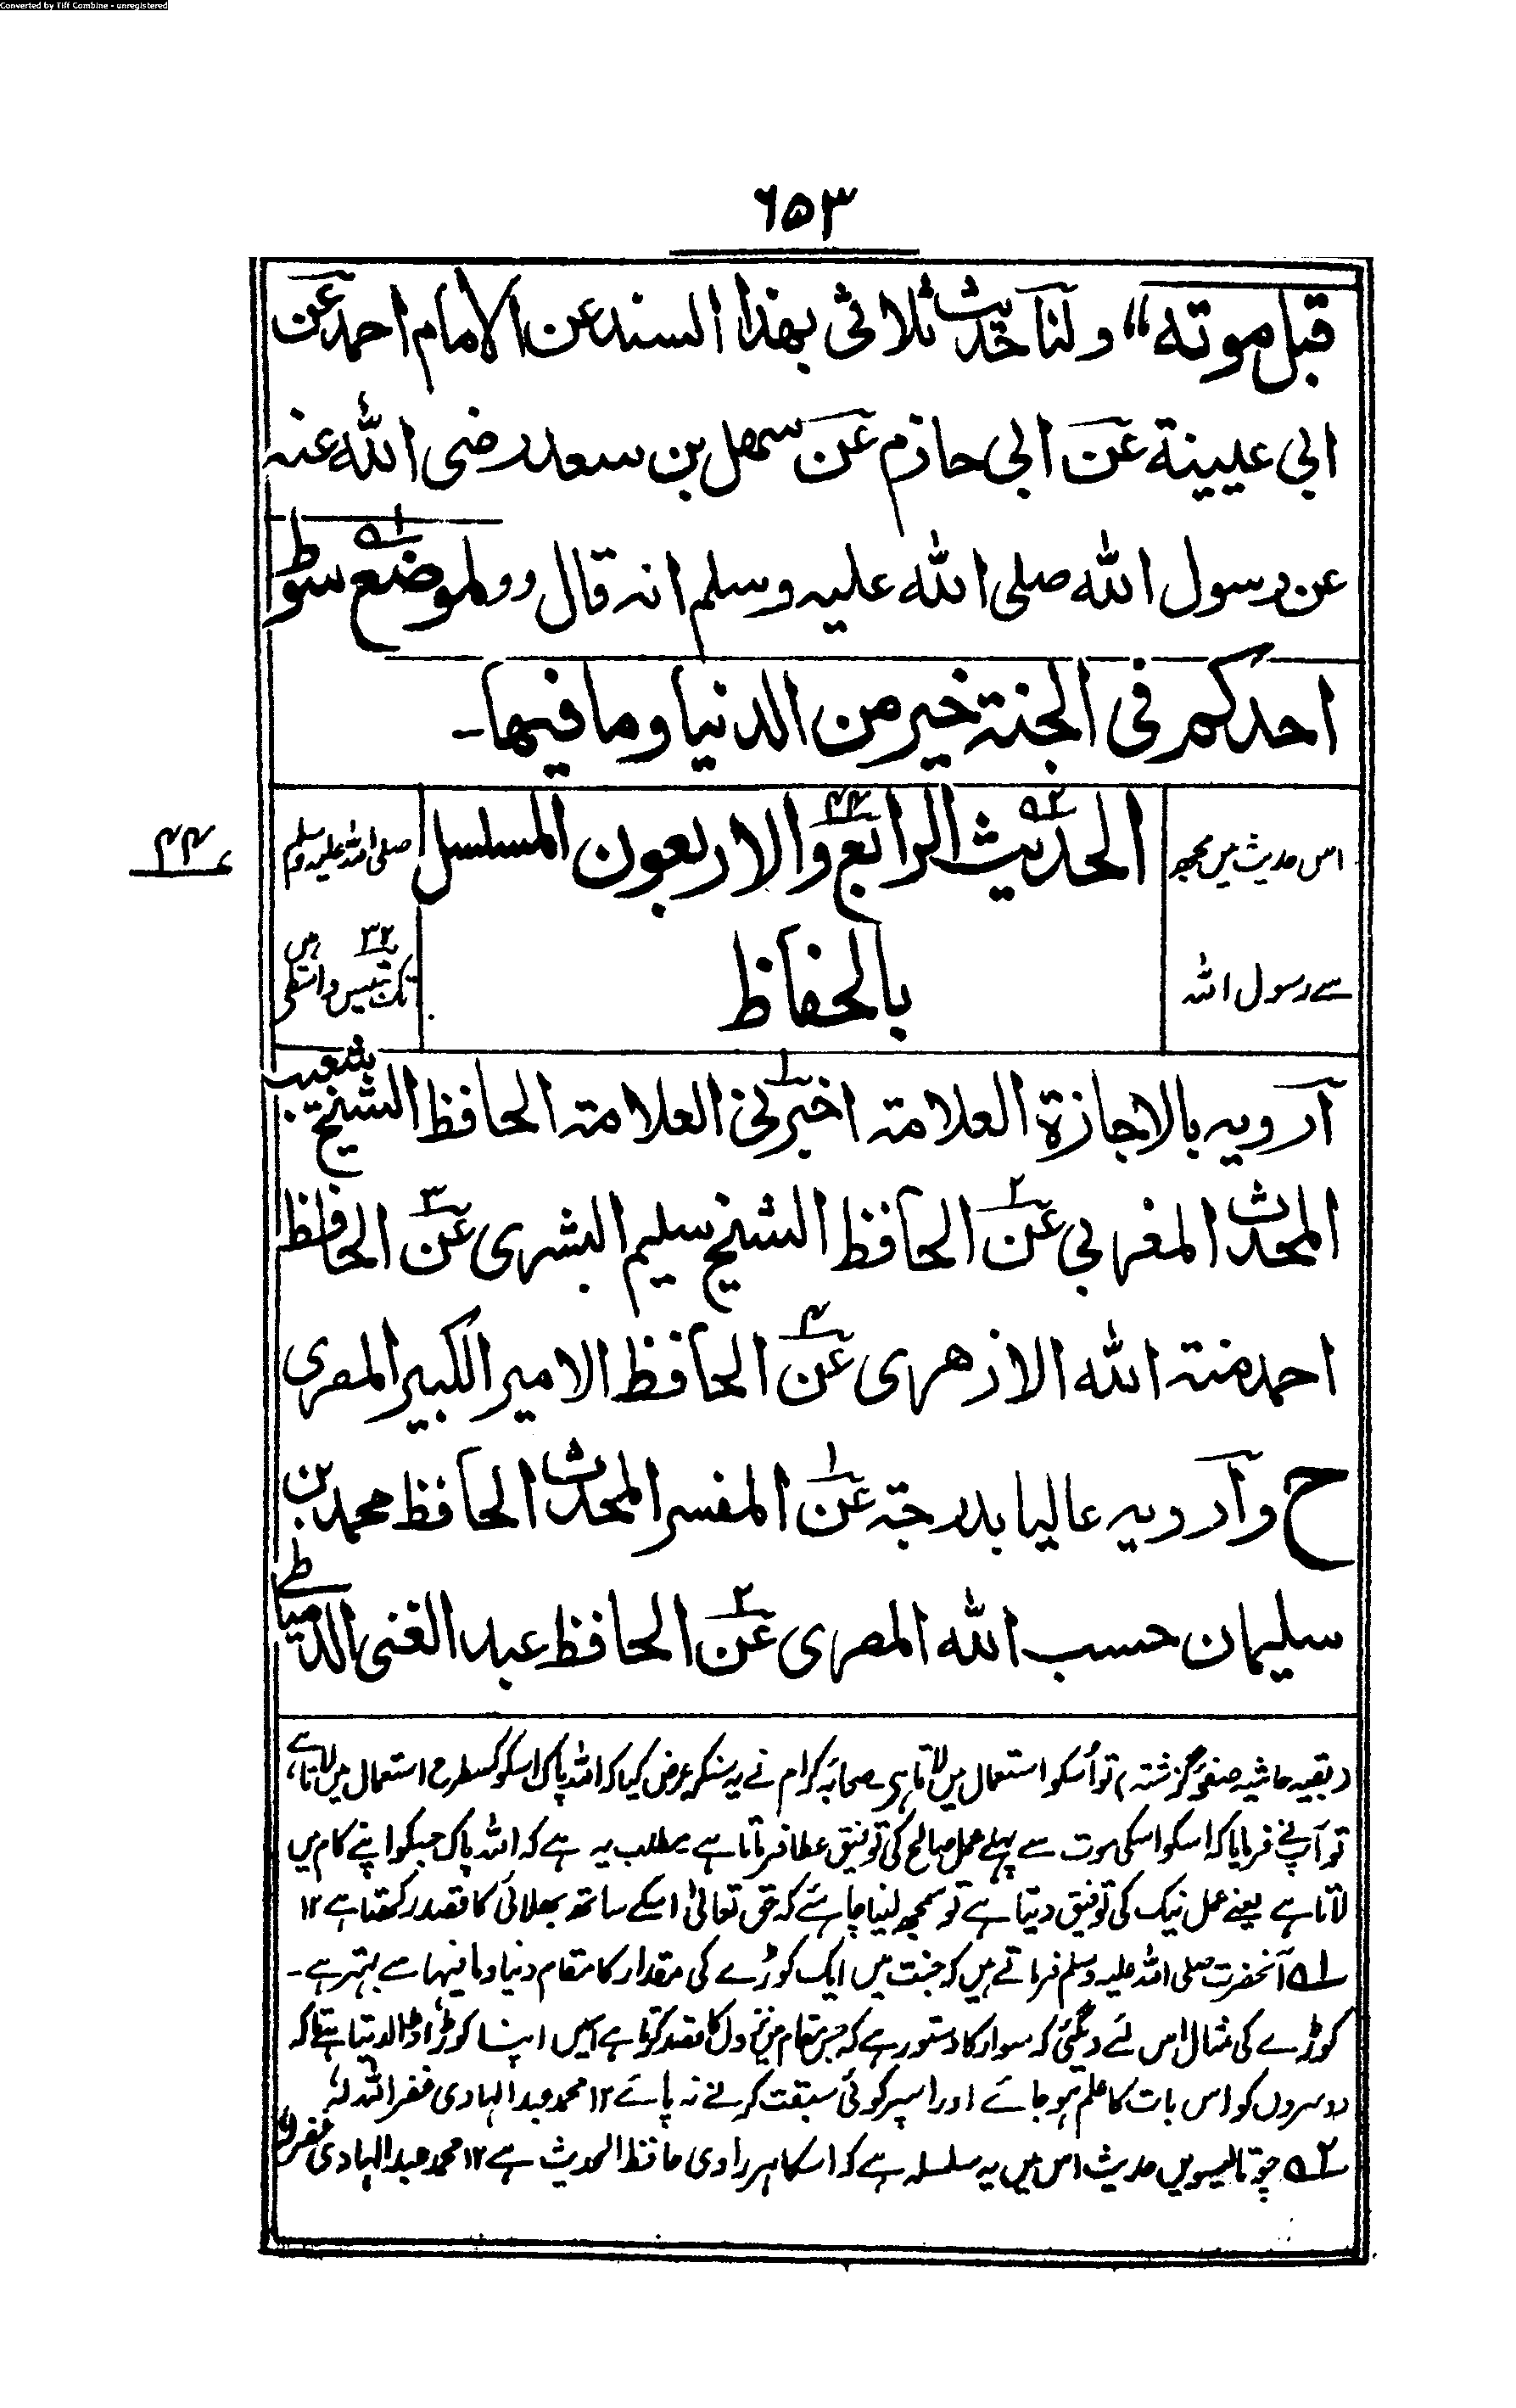 Converted by Tiff Combine - unregistered
۶۵۳
قبل موته“ ولنا حديث ثلاثى بهذا السند عن الامام احمد عن
ابى عيينة عن ابى حازم عن سهل بن سعد رضى الله عنه
عن رسول الله صلى الله عليه وسلم انه قال ,,لموضع سوط
احدكم فى الجنة خير من الدنيا وما فيها۔
۴۴
اس حدیث میں مجھ
الحديث الرابع والاربعون المسلسل
صلی اللہ علیہ وسلم
سے رسول اللہ
بالحفاظ
تک تیس واسطے ۳۲ ہیں
آرويه بالاجازة العلامة اخبرنى العلامة الحافظ الشيخ شعيب
المحدث المغربى عن الحافظ الشيخ سليم البشرى عن الحافظ
احمد منة الله الازهرى عن الحافظ الامير الكبير المصرى
ح وآرويه عاليا بدرجة عن المفسر المحدث الحافظ محمد بن
سليمان حسب الله المصرى عن الحافظ عبد الغنى الدمياطى
(بقیہ حاشیہ صفحۂ گزشتہ) تو اُسکو استعمال میں لاتا ہی صحابۂ کرام نے یہ سنکر عرض کیا کہ اللہ پاک اسکو کسطرح استعمال میں لاتا ہے،
تو آپنے فرمایا کہ اسکو اسکی موت سے پہلے عمل صالح کی توفیق عطا فرماتا ہے مطلب یہ ہے کہ اللہ پاک جبکو اپنے کام میں
لاتا ہے یعنے عمل نیک کی توفیق دیتا ہے تو سمجھ لینا چاہئے کہ حق تعالیٰ اسکے ساتھ بھلائی کا قصد رکھتا ہے ۱۲
۱؎ آنحضرت صلی اللہ علیہ وسلم فرماتے ہیں کہ جنت میں ایک کوڑے کی مقدار کا مقام دنیا و مافیہا سے بہتر ہے۔
کوڑے کی مثال اس لئے دیگئی کہ سوار کا دستور ہے کہ جس مقام میں نزول کا قصد کرتا ہے اسمیں اپنا کوڑا ڈالدیتا ہے تاکہ
دوسروں کو اس بات کا علم ہو جائے اور اسپر کوئی سبقت کرنے نہ پائے ۱۲ محمد عبد الہادی غفر اللہ لہٗ
۲؎ چوتالیسویں حدیث اس میں یہ سلسلہ ہے کہ اسکا ہر راوی حافظ الحدیث ہے ۱۲ محمد عبد الہادی غفرلہ